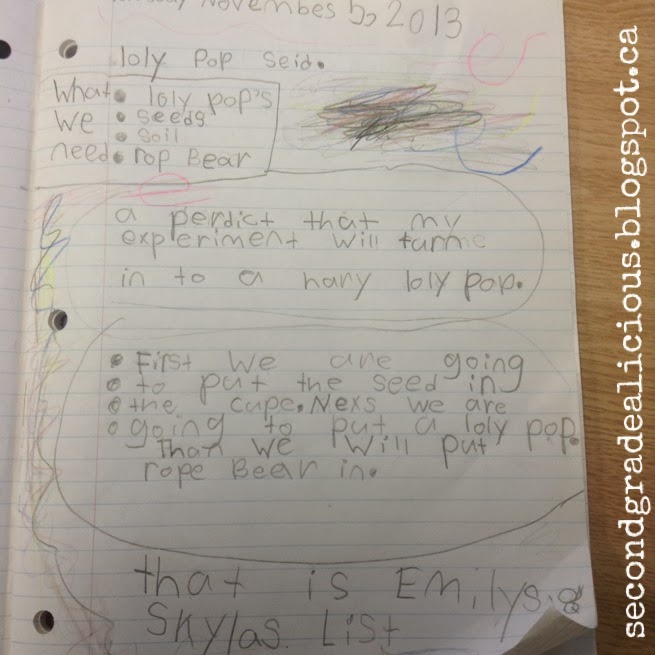 November 5, 2013
loly Pop Seid.
What • loly pop's
We • Seeds
• Soil
need • rop Bear
a perdict that my
experiment will turne
in to a hary loly pop.
• First We are going
• to put the seed in
• the cupe. Nexs we are
• going to put a loly pop.
Than we will put
rope Bear in.
that is EMilys. &
SKylas. List
secondgradealicious.blogspot.ca